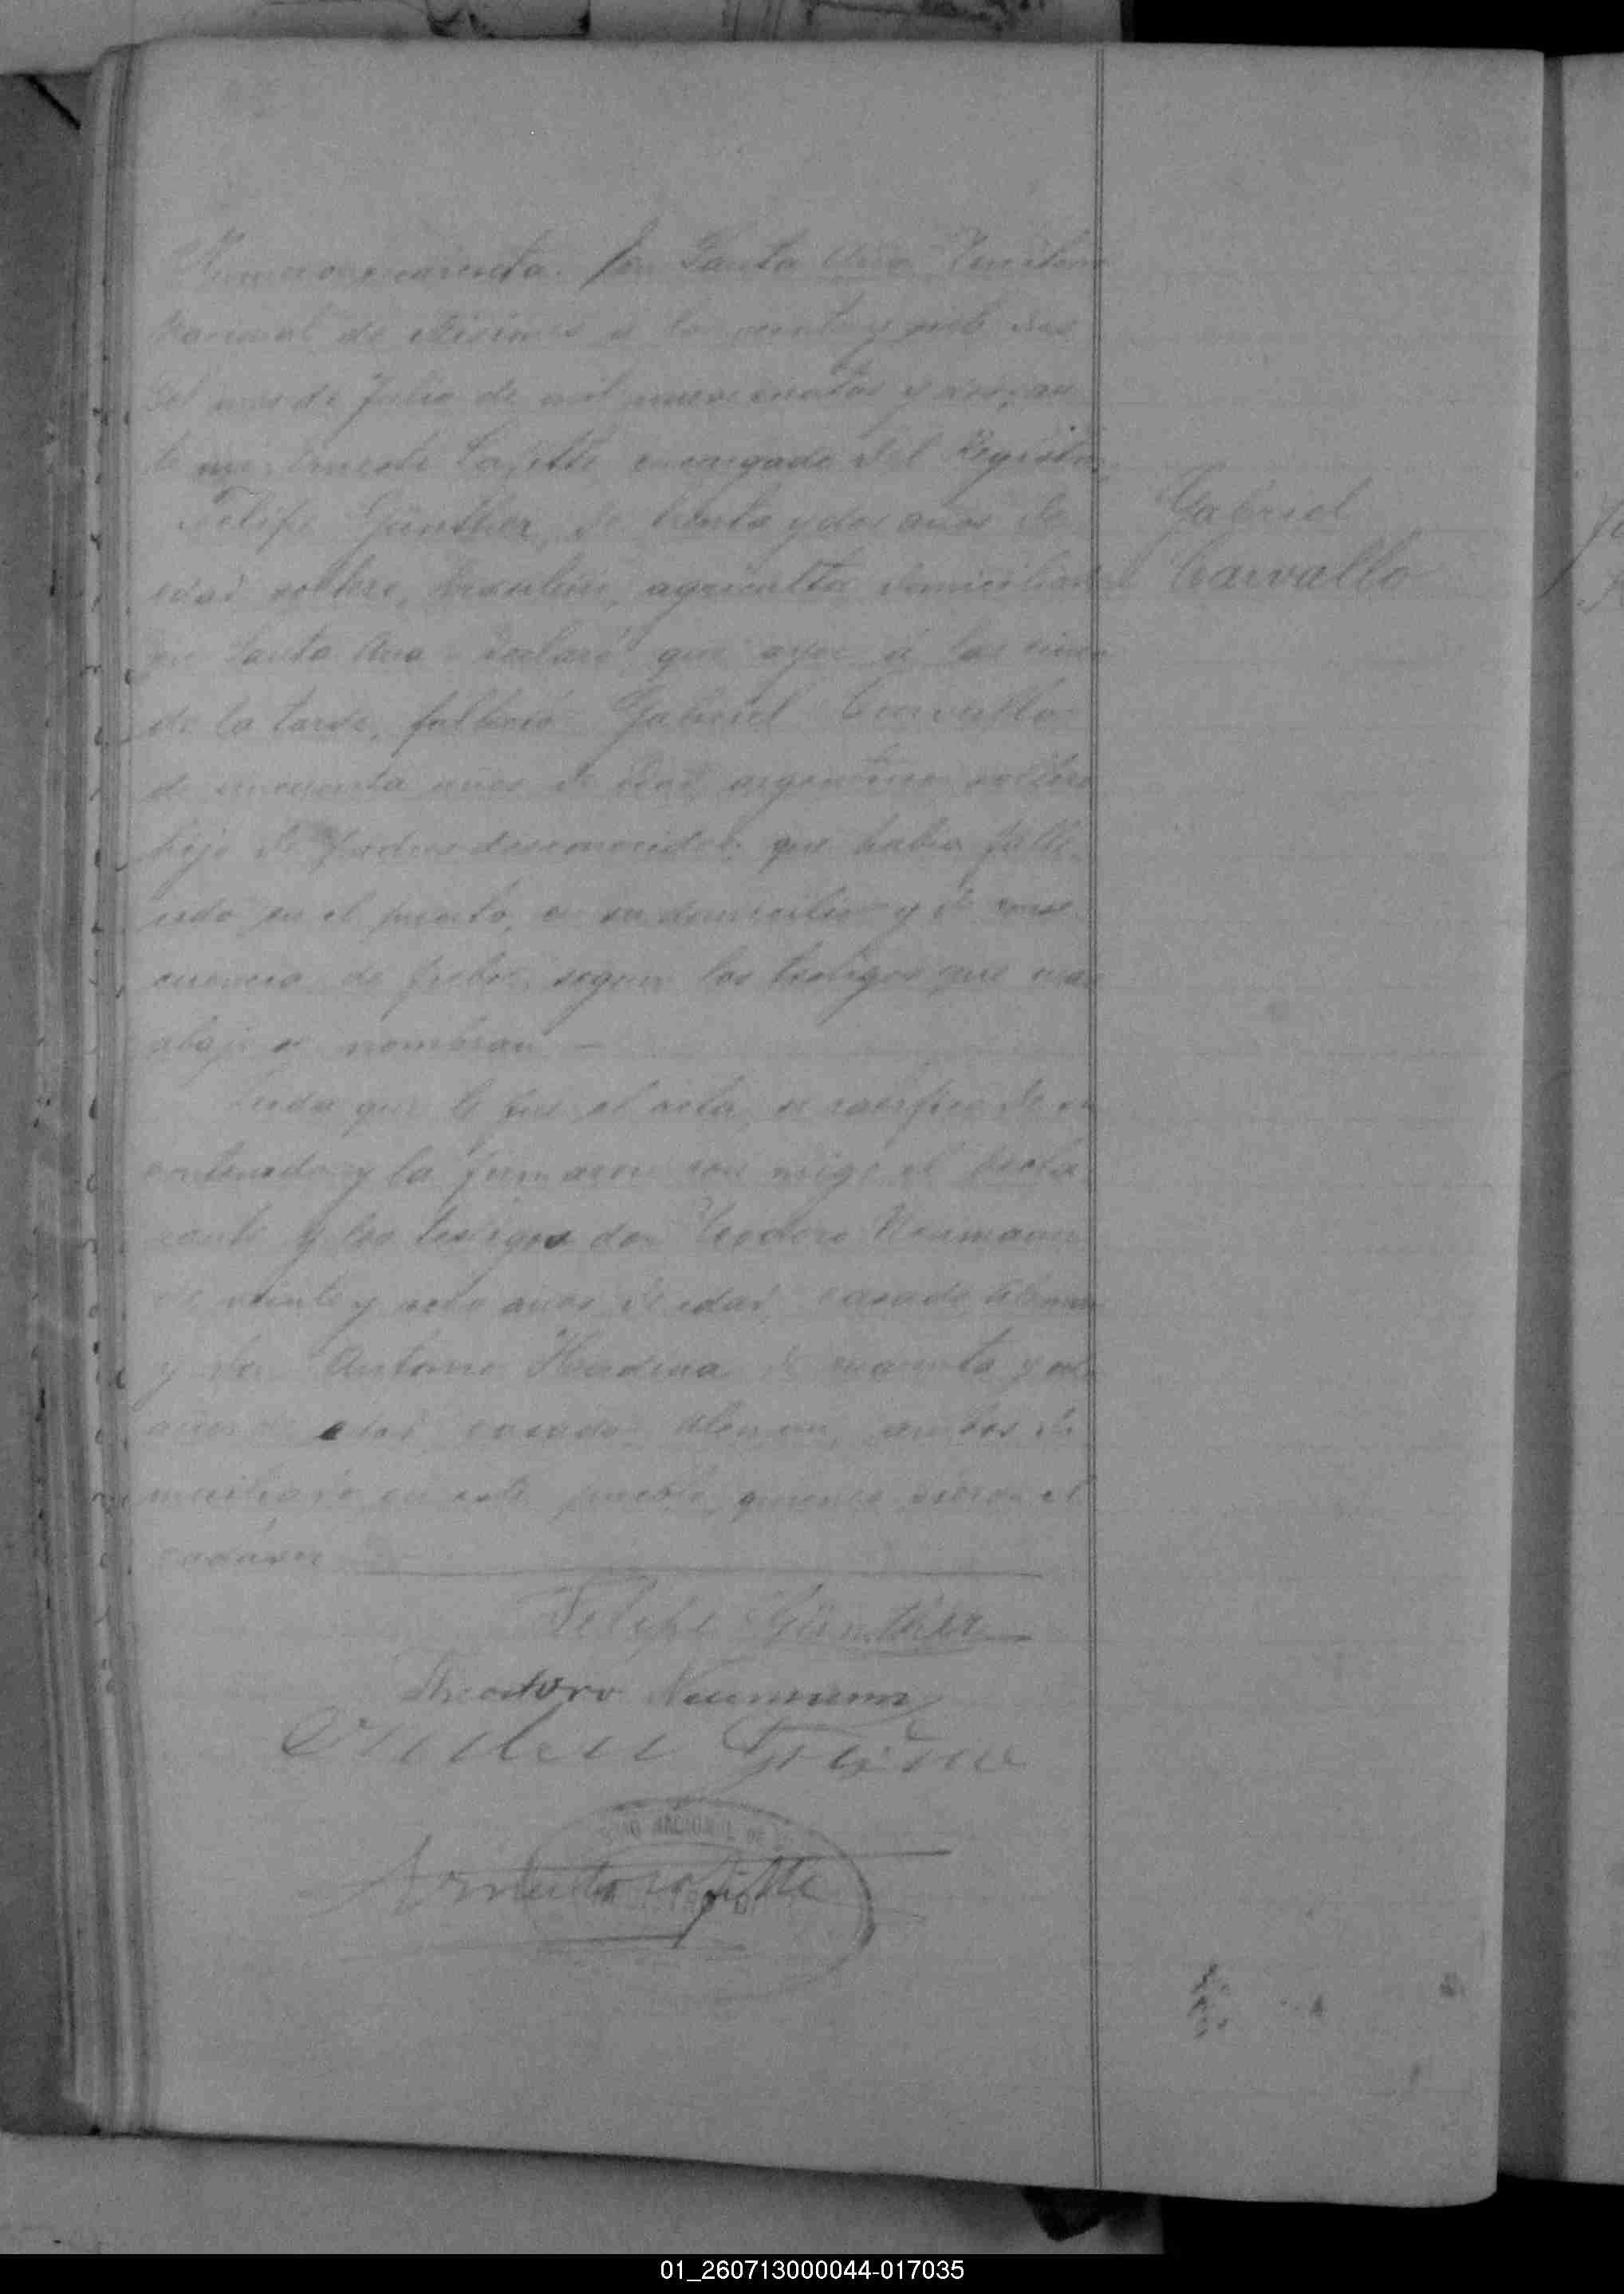 Numero cuarenta. En Santa Ana Territorio
Nacional de Misiones a los veinte y siete dias
del mes de Julio de mil nuevecientos y dos, an
te mi, Ernesto Lafitte encargado del Registro,
Felipe Günther, de treinta y dos años de
edad soltero, brasilero, agricultor domiciliado
en Santa Ana declaró que ayer á las cinco
de la tarde, falleció Gabriel Carvallo
de cincuenta años de edad argentino soltero
hijo de padres desconocidos, que habia falle
cido en el puerto, en su domicilio y de conse
cuencia de fiebre, segun los testigos que mas
abajo se nombran —
Leida que le fue el acta, se ratifico de su
contenido y la firmaron con migo el decla
rante y los testigos don Teodoro Neumann
de veinte y ocho años de edad, casado aleman
y don Antonio de cuarenta y
años de edad casado aleman, ambos do
miciliado en este pueblo, quienes vieron el
cadaver
Felipe Günther
Theodoro Neumann
Ernesto Lafitte
NACIONAL DE
Gabriel
Carvallo
01_260713000044-017035